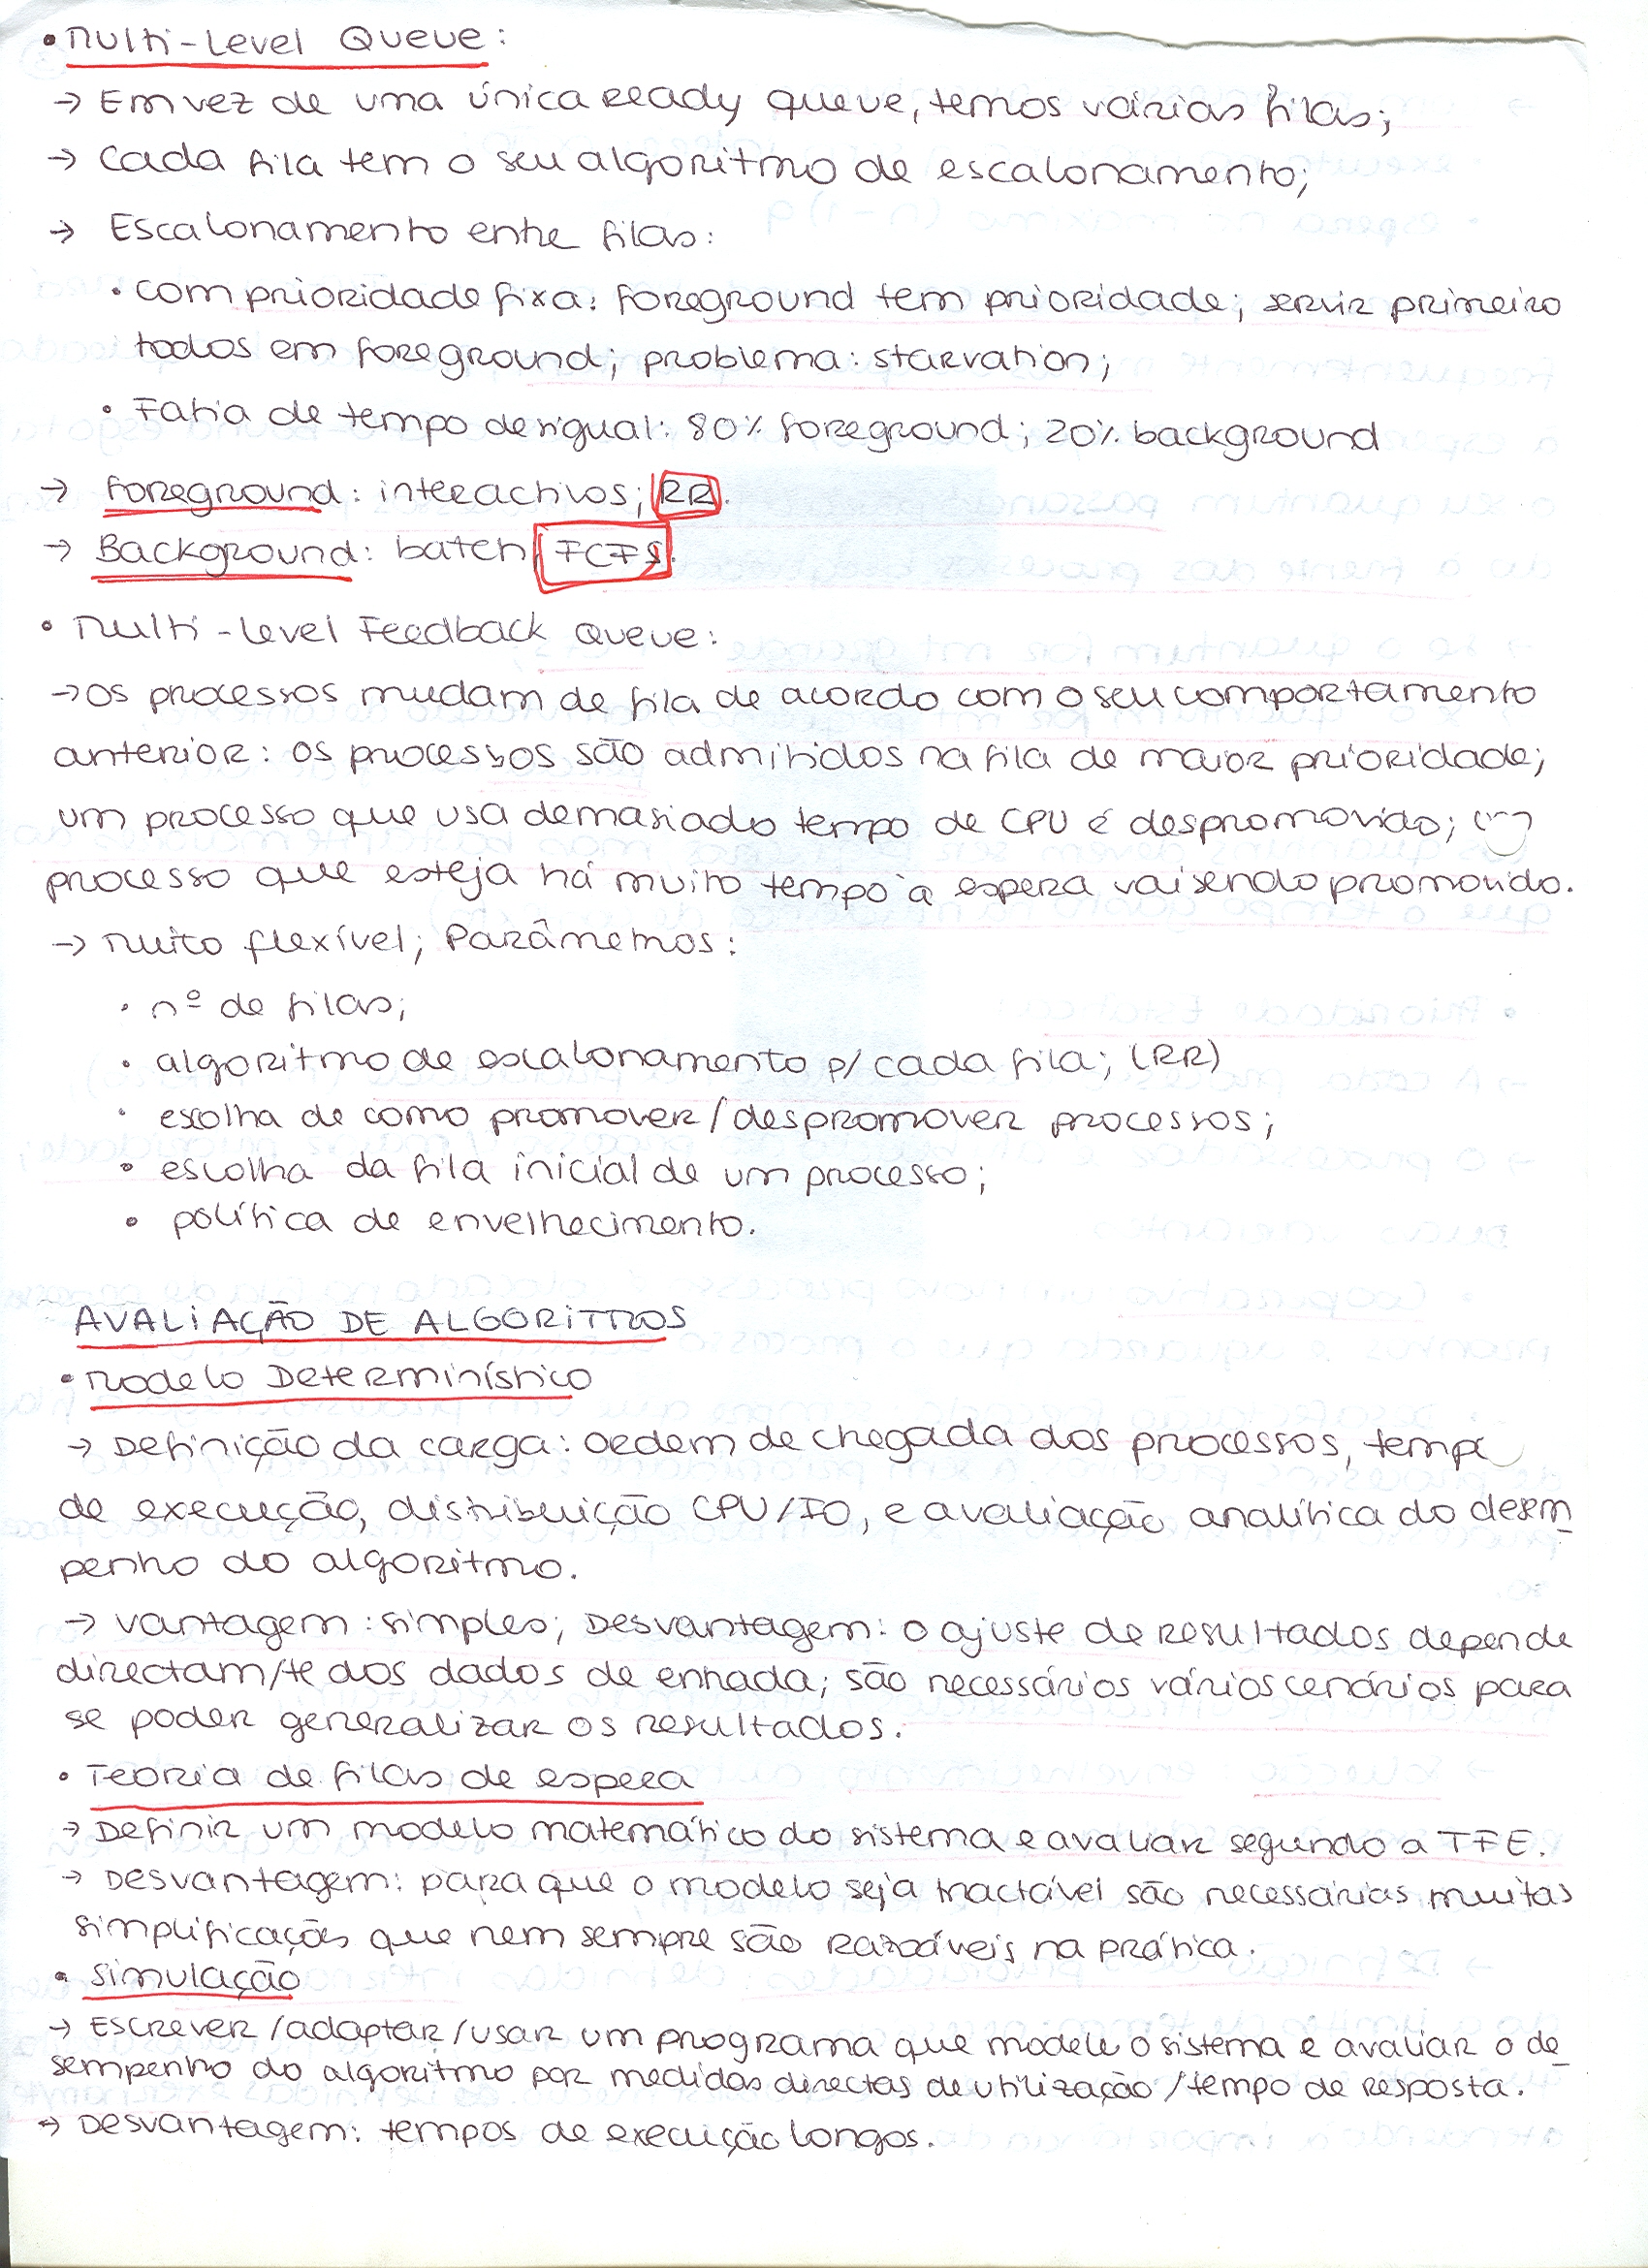 • Multi-Level Queue:
→ Em vez de uma única ready queue, temos várias filas;
→ Cada fila tem o seu algoritmo de escalonamento;
→ Escalonamento entre filas:
• com prioridade fixa: foreground tem prioridade; servir primeiro
todos em foreground; problema: starvation;
• Fatia de tempo desigual: 80% foreground; 20% background
→ Foreground: interactivos; RR.
→ Background: batch, FCFS.
• Multi-level Feedback Queue:
→ Os processos mudam de fila de acordo com o seu comportamento
anterior: os processos são admitidos na fila de maior prioridade;
um processo que usa demasiado tempo de CPU é despromovido; um
processo que esteja há muito tempo à espera vai sendo promovido.
→ Muito flexível; Parâmetros:
• nº de filas;
• algoritmo de escalonamento p/ cada fila; (RR)
• escolha de como promover/despromover processos;
• escolha da fila inicial de um processo;
• política de envelhecimento.
AVALIAÇÃO DE ALGORITMOS
• Modelo Determinístico
→ Definição da carga: ordem de chegada dos processos, tempo
de execução, distribuição CPU/IO, e avaliação analítica do desem
penho do algoritmo.
→ Vantagem: simples; Desvantagem: o ajuste de resultados depende
directam/te dos dados de entrada; são necessários vários cenários para
se poder generalizar os resultados.
• Teoria de filas de espera
→ Definir um modelo matemático do sistema e avaliar segundo a TFE.
→ Desvantagem: para que o modelo seja tractável são necessárias muitas
simplificações que nem sempre são razoáveis na prática.
• Simulação
→ Escrever/adaptar/usar um programa que modele o sistema e avaliar o de
sempenho do algoritmo por medidas directas de utilização/tempo de resposta.
→ Desvantagem: tempos de execução longos.